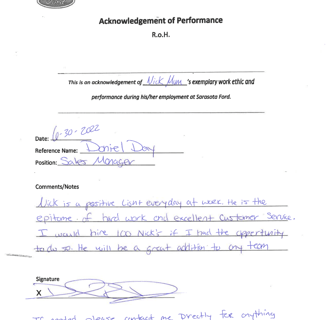 Acknowledgement of Performance
R.o.H.
This is an acknowledgement of Nick 's exemplary work ethic and
performance during his/her employment at Sarasota Ford.
Date: 6-30-2022
Reference Name: Daniel Day
Position: Sales Manager
Comments/Notes
Nick is a positive light everyday at work. He is the
epitome of hard work and excellent Customer Service.
I would hire 100 Nick's if I had the opportunity
to do so. He will be a great addition to any team
Signature
X
If needed please contact me directly for anything